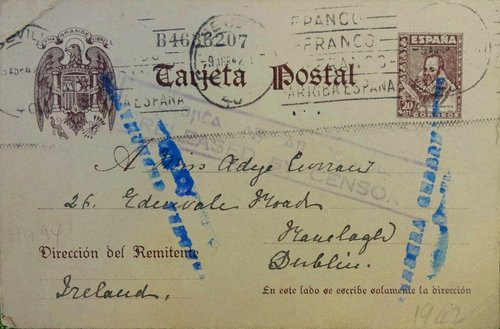 SEVILLA
UNA GRANDE LIBRE
B4636207
FRANCO
FRANCO
FRANCO
ARRIBA ESPAÑA
ESPAÑA
Tarjeta Postal
20
CORREOS
ARRIBA ESPAÑA
RELEASED CENSOR
A Miss Adye Curran
26. Edenvale Road
Ranelagh
Dublin.
Dirección del Remitente
Ireland.
En este lado se escribe solamente la dirección
CENSURA GUBERNATIVA